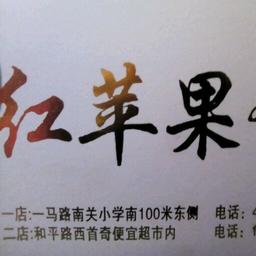 红苹果
一店:一马路南关小学南100米东侧 电话:
二店:和平路西首奇便宜超市内 电话: